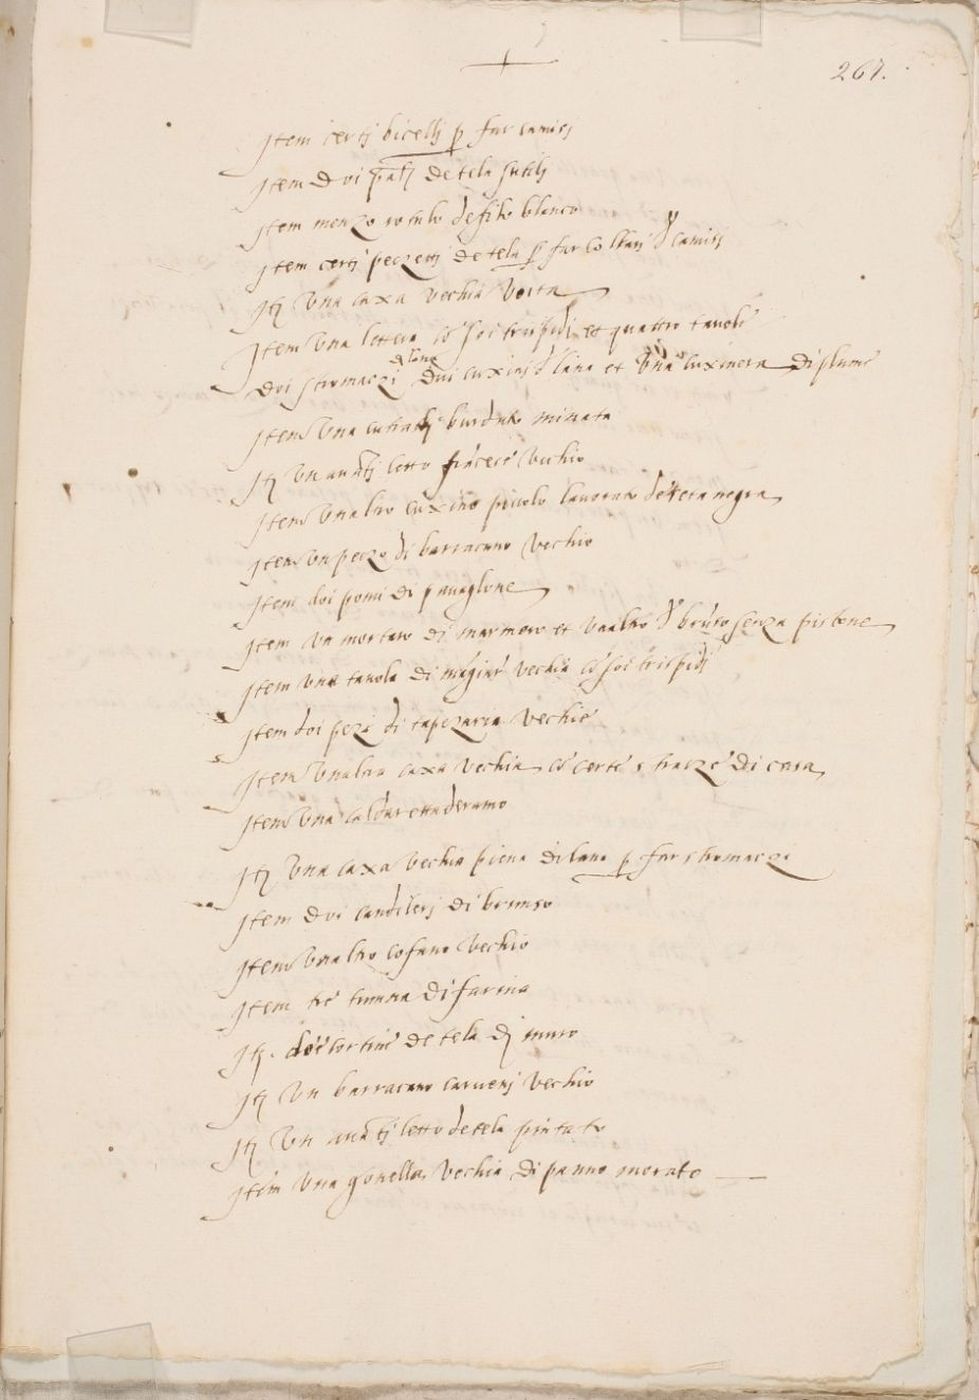 267.
Item certj bicellj p far camisj
Item doi palj de tela sutilj
Item menzo rotulo de filo blanco
Item certj peczettj de tela p far collarj d camisj
Itj una caxa vechia vota
Item una lettera co soi trispidi et quattro tavole
di lana
doi stramaczi dui cuxinj d lana et una cuxinera di plume
Item una burduto minata
Itj un avatj letto vechio
Item unaltro cuxino piccolo lavorato de seta negra
Item un peczo di barracano vechio
Item doi pomi di pavaglone
Item un mortaro di marmoro et unaltro d bruso senza pistone
Item una tavola di mágiare vechia co soi trispidi
Item doi pezi di tapezaria vechie
Item unaltra caxa vechia co certe stracze di casa
Item una caldaretta de ramo
Itj una caxa vechia piena di lana p far stramaczi
Item doi candilerj di brunzo
Item unaltro cofano vechio
Item tre tumina di farina
Itj. doe cortine de tela di muro
Itj un barracano vechio
Itj un avatj letto de tela pintato
Item una gonella vechia di panno morato